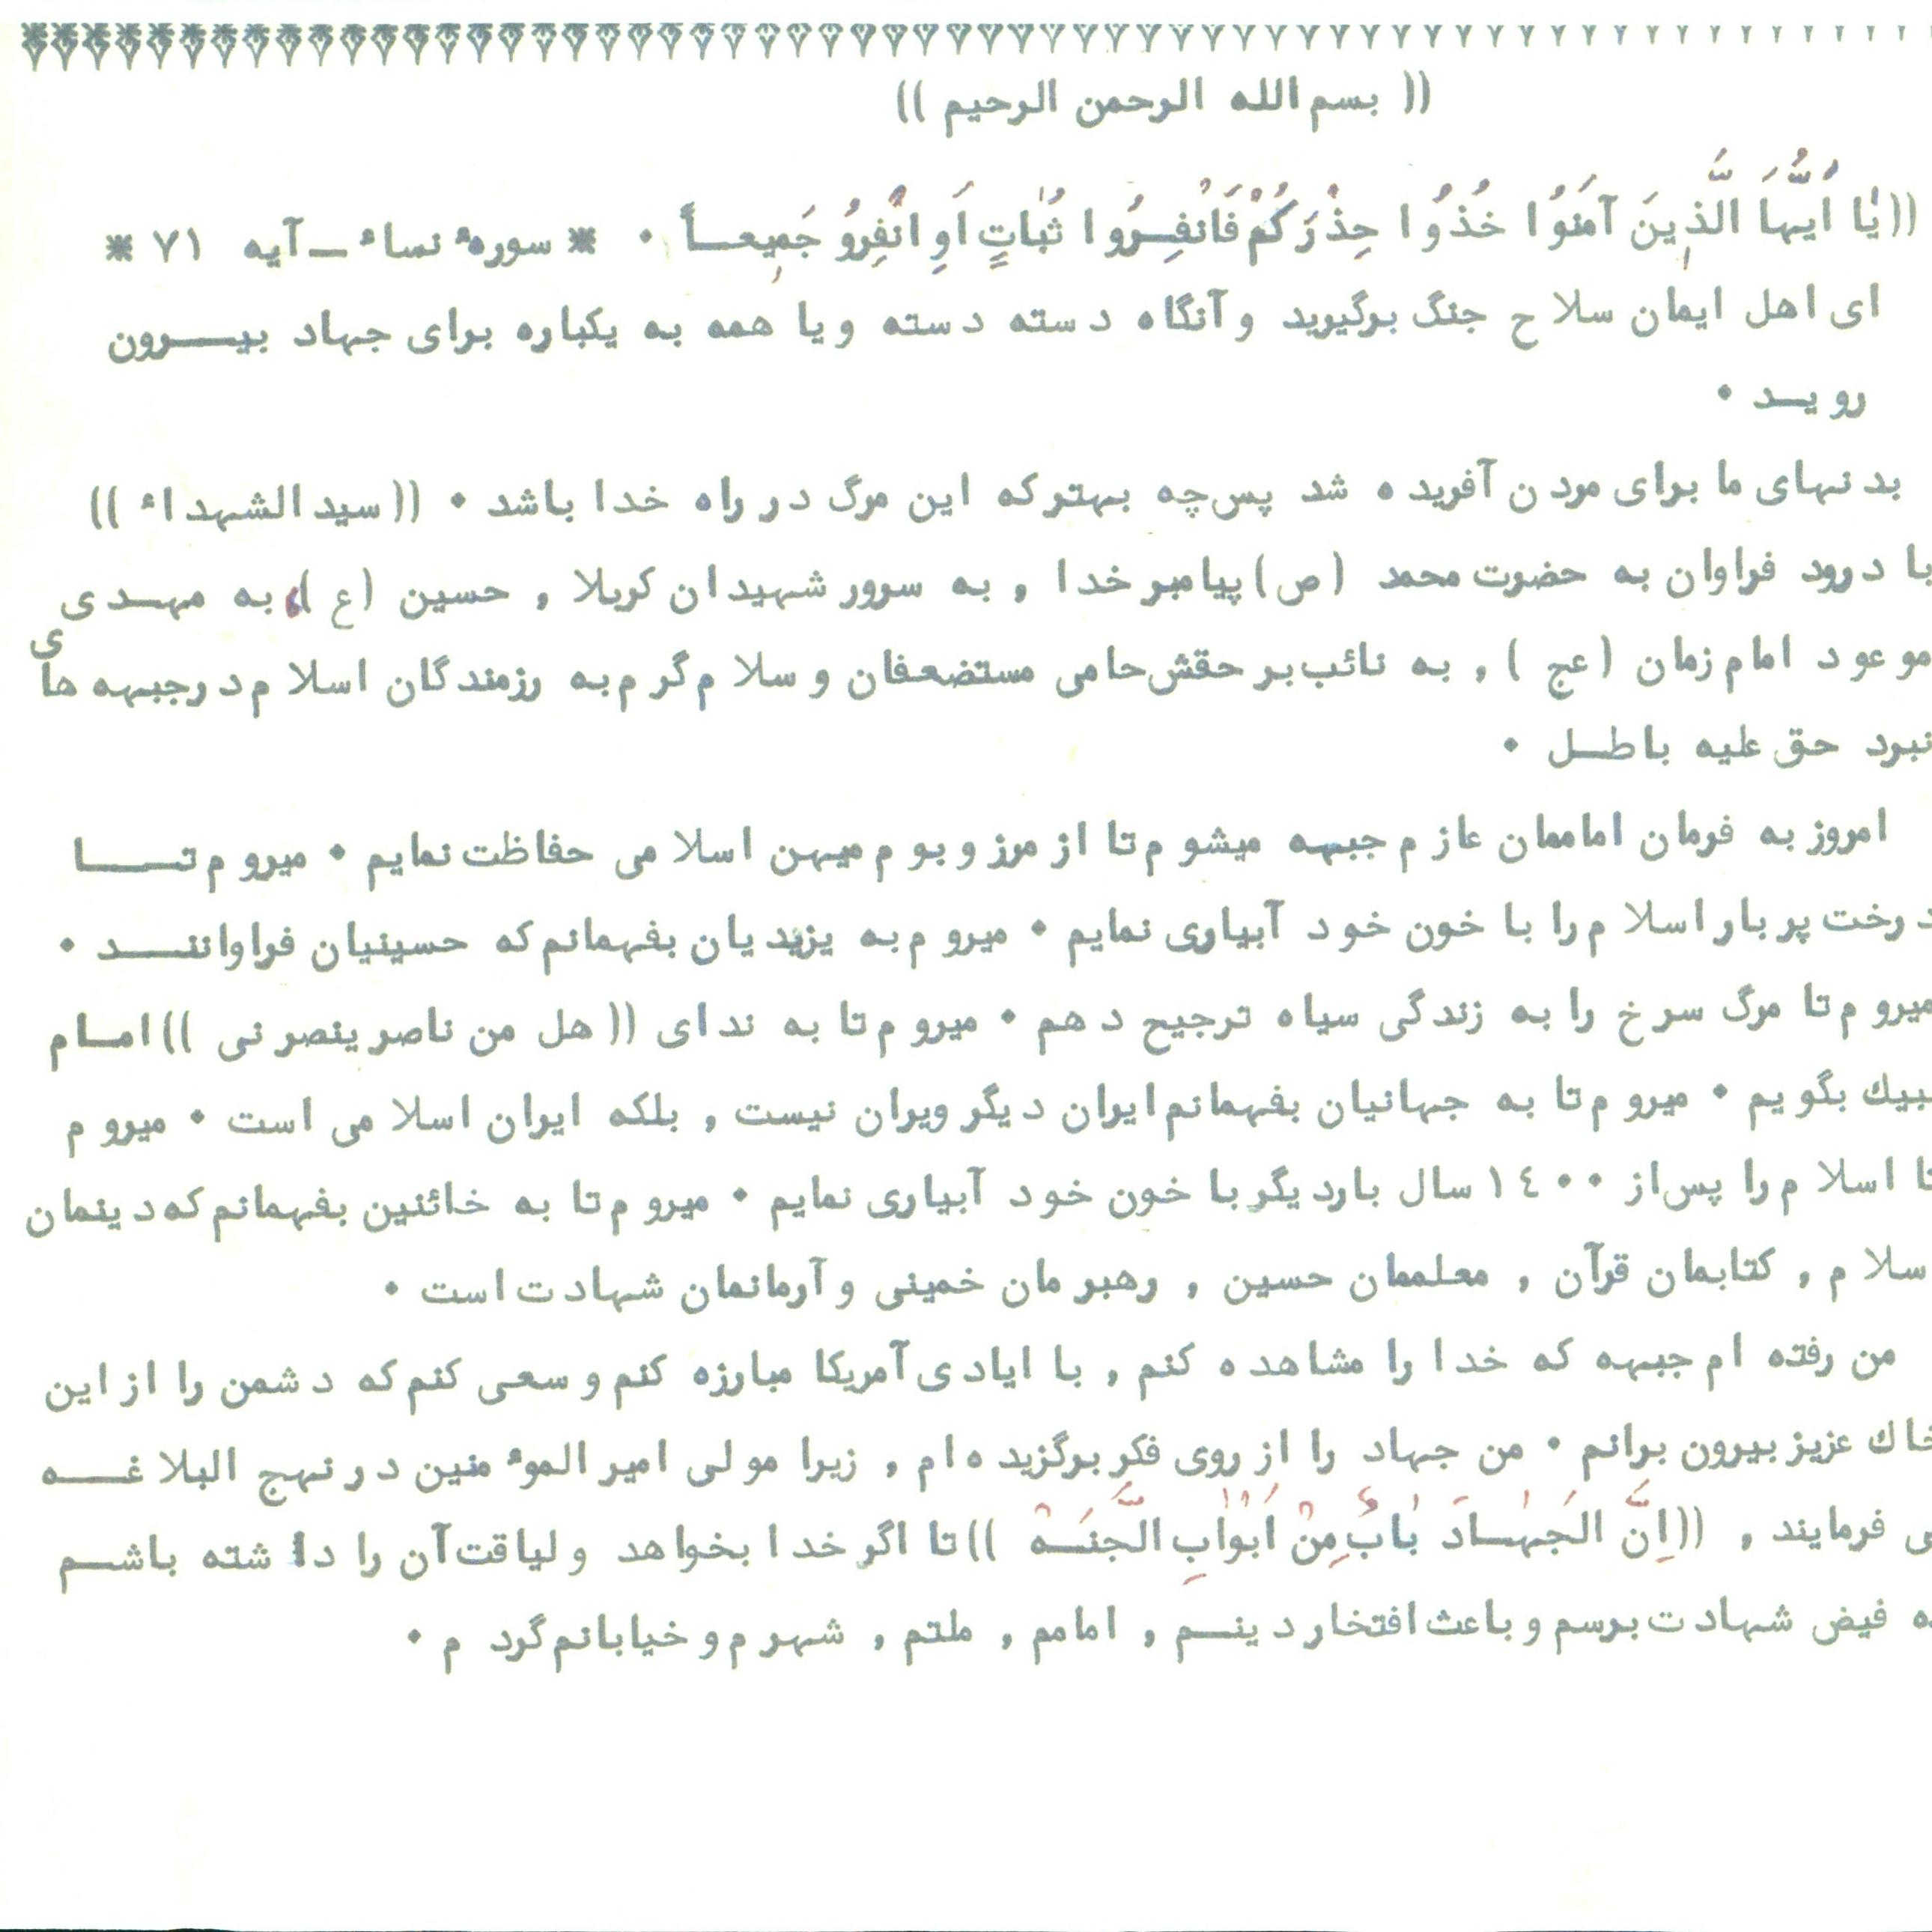 (( بسم الله الرحمن الرحیم ))
((یٰا اَیُّهَا الَّذینَ آمَنَوُا خُذوُا حِذْرَکُمْ فَانْفِـرُوا ثُبٰاتٍ اَوِ انْفِروُ جَمیعــاً ۰ * سورهٔ نساء ــ آیه ۷۱ *
ای اهل ایمان سلاح جنگ برگیرید و آنگاه دسته دسته و یا همه به یکباره برای جهاد بیــرون
رویـد ۰
بدنهای ما برای مردن آفریده شد پس چه بهتر که این مرگ در راه خدا باشد ۰ ((سید الشهداء ))
با درود فراوان به حضرت محمد (ص) پیامبر خدا , به سرور شهیدان کربلا , حسین (ع), به مهـدی
موعود امام زمان (عج ) , به نائب بر حقش حامی مستضعفان و سلام گرم به رزمندگان اسلام در جبهه های
نبرد حق علیه باطـل ۰
امروز به فرمان اماممان عازم جبهه میشوم تا از مرز و بوم میهن اسلامی حفاظت نمایم ۰ میروم تــا
درخت پر بار اسلام را با خون خود آبیاری نمایم ۰ میروم به یزیدیان بفهمانم که حسینیان فراواننــد ۰
میروم تا مرگ سرخ را به زندگی سیاه ترجیح دهم ۰ میروم تا به ندای ((هل من ناصر ینصرنی )) امـام
بیك بگویم ۰ میروم تا به جهانیان بفهمانم ایران دیگر ویران نیست , بلکه ایران اسلامی است ۰ میروم
تا اسلام را پس از ۱۴۰۰ سال بار دیگر با خون خود آبیاری نمایم ۰ میروم تا به خائنین بفهمانم که دینمان
سلام , کتابمان قرآن , معلممان حسین , رهبرمان خمینی و آرمانمان شهادت است ۰
من رفته ام جبهه که خدا را مشاهده کنم , با ایادی آمریکا مبارزه کنم و سعی کنم که دشمن را از این
خاك عزیز بیرون برانم ۰ من جهاد را از روی فکر برگزیده ام , زیرا مولی امیر الموٴمنین در نهج البلاغــه
ی فرمایند , ((اِنَّ الَجَهٰـادَ بٰابٌ مِنْ اَبْوٰابِ الَّجَنَـةْ )) تا اگر خدا بخواهد و لیاقت آن را داشته باشـم
ه فیض شهادت برسم و باعث افتخار دینـم , امامم , ملتم , شهرم و خیابانم گردم ۰